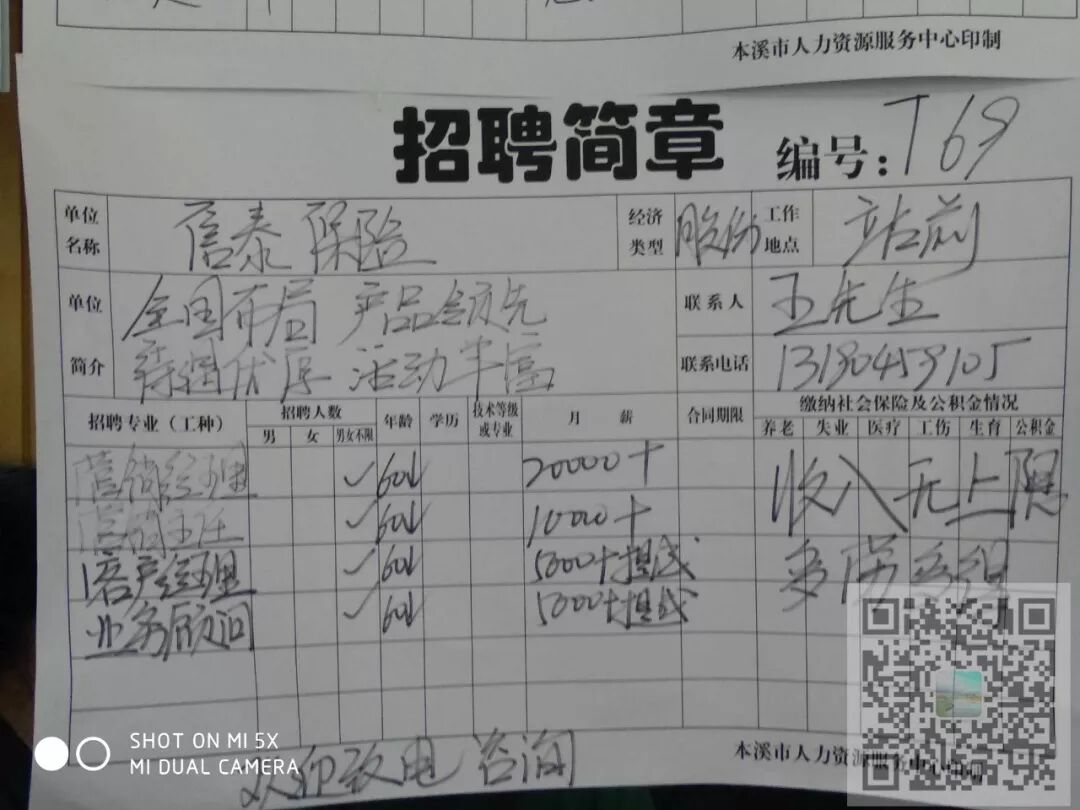 本溪市人力资源服务中心印制
招聘简章
编号:T69
单位名称 信泰保险 经济类型 股份 工作地点 站前
单位简介 全国布局 产品领先 联系人 王先生
待遇优厚 活动丰富 联系电话 13190459105
招聘专业(工种) 招聘人数 年龄 学历 技术等级或专业 月薪 合同期限 缴纳社会保险及公积金情况
男 女 男女不限 养老 失业 医疗 工伤 生育 公积金
营销经理 ✓ 60以 20000+ 收入无上限
营销主任 ✓ 60以 10000+
客户经理 ✓ 60以 5000+提成 多劳多得
业务顾问 ✓ 60以 5000+提成
欢迎致电 咨询
本溪市人力资源服务中心印制
SHOT ON MI 5X
MI DUAL CAMERA